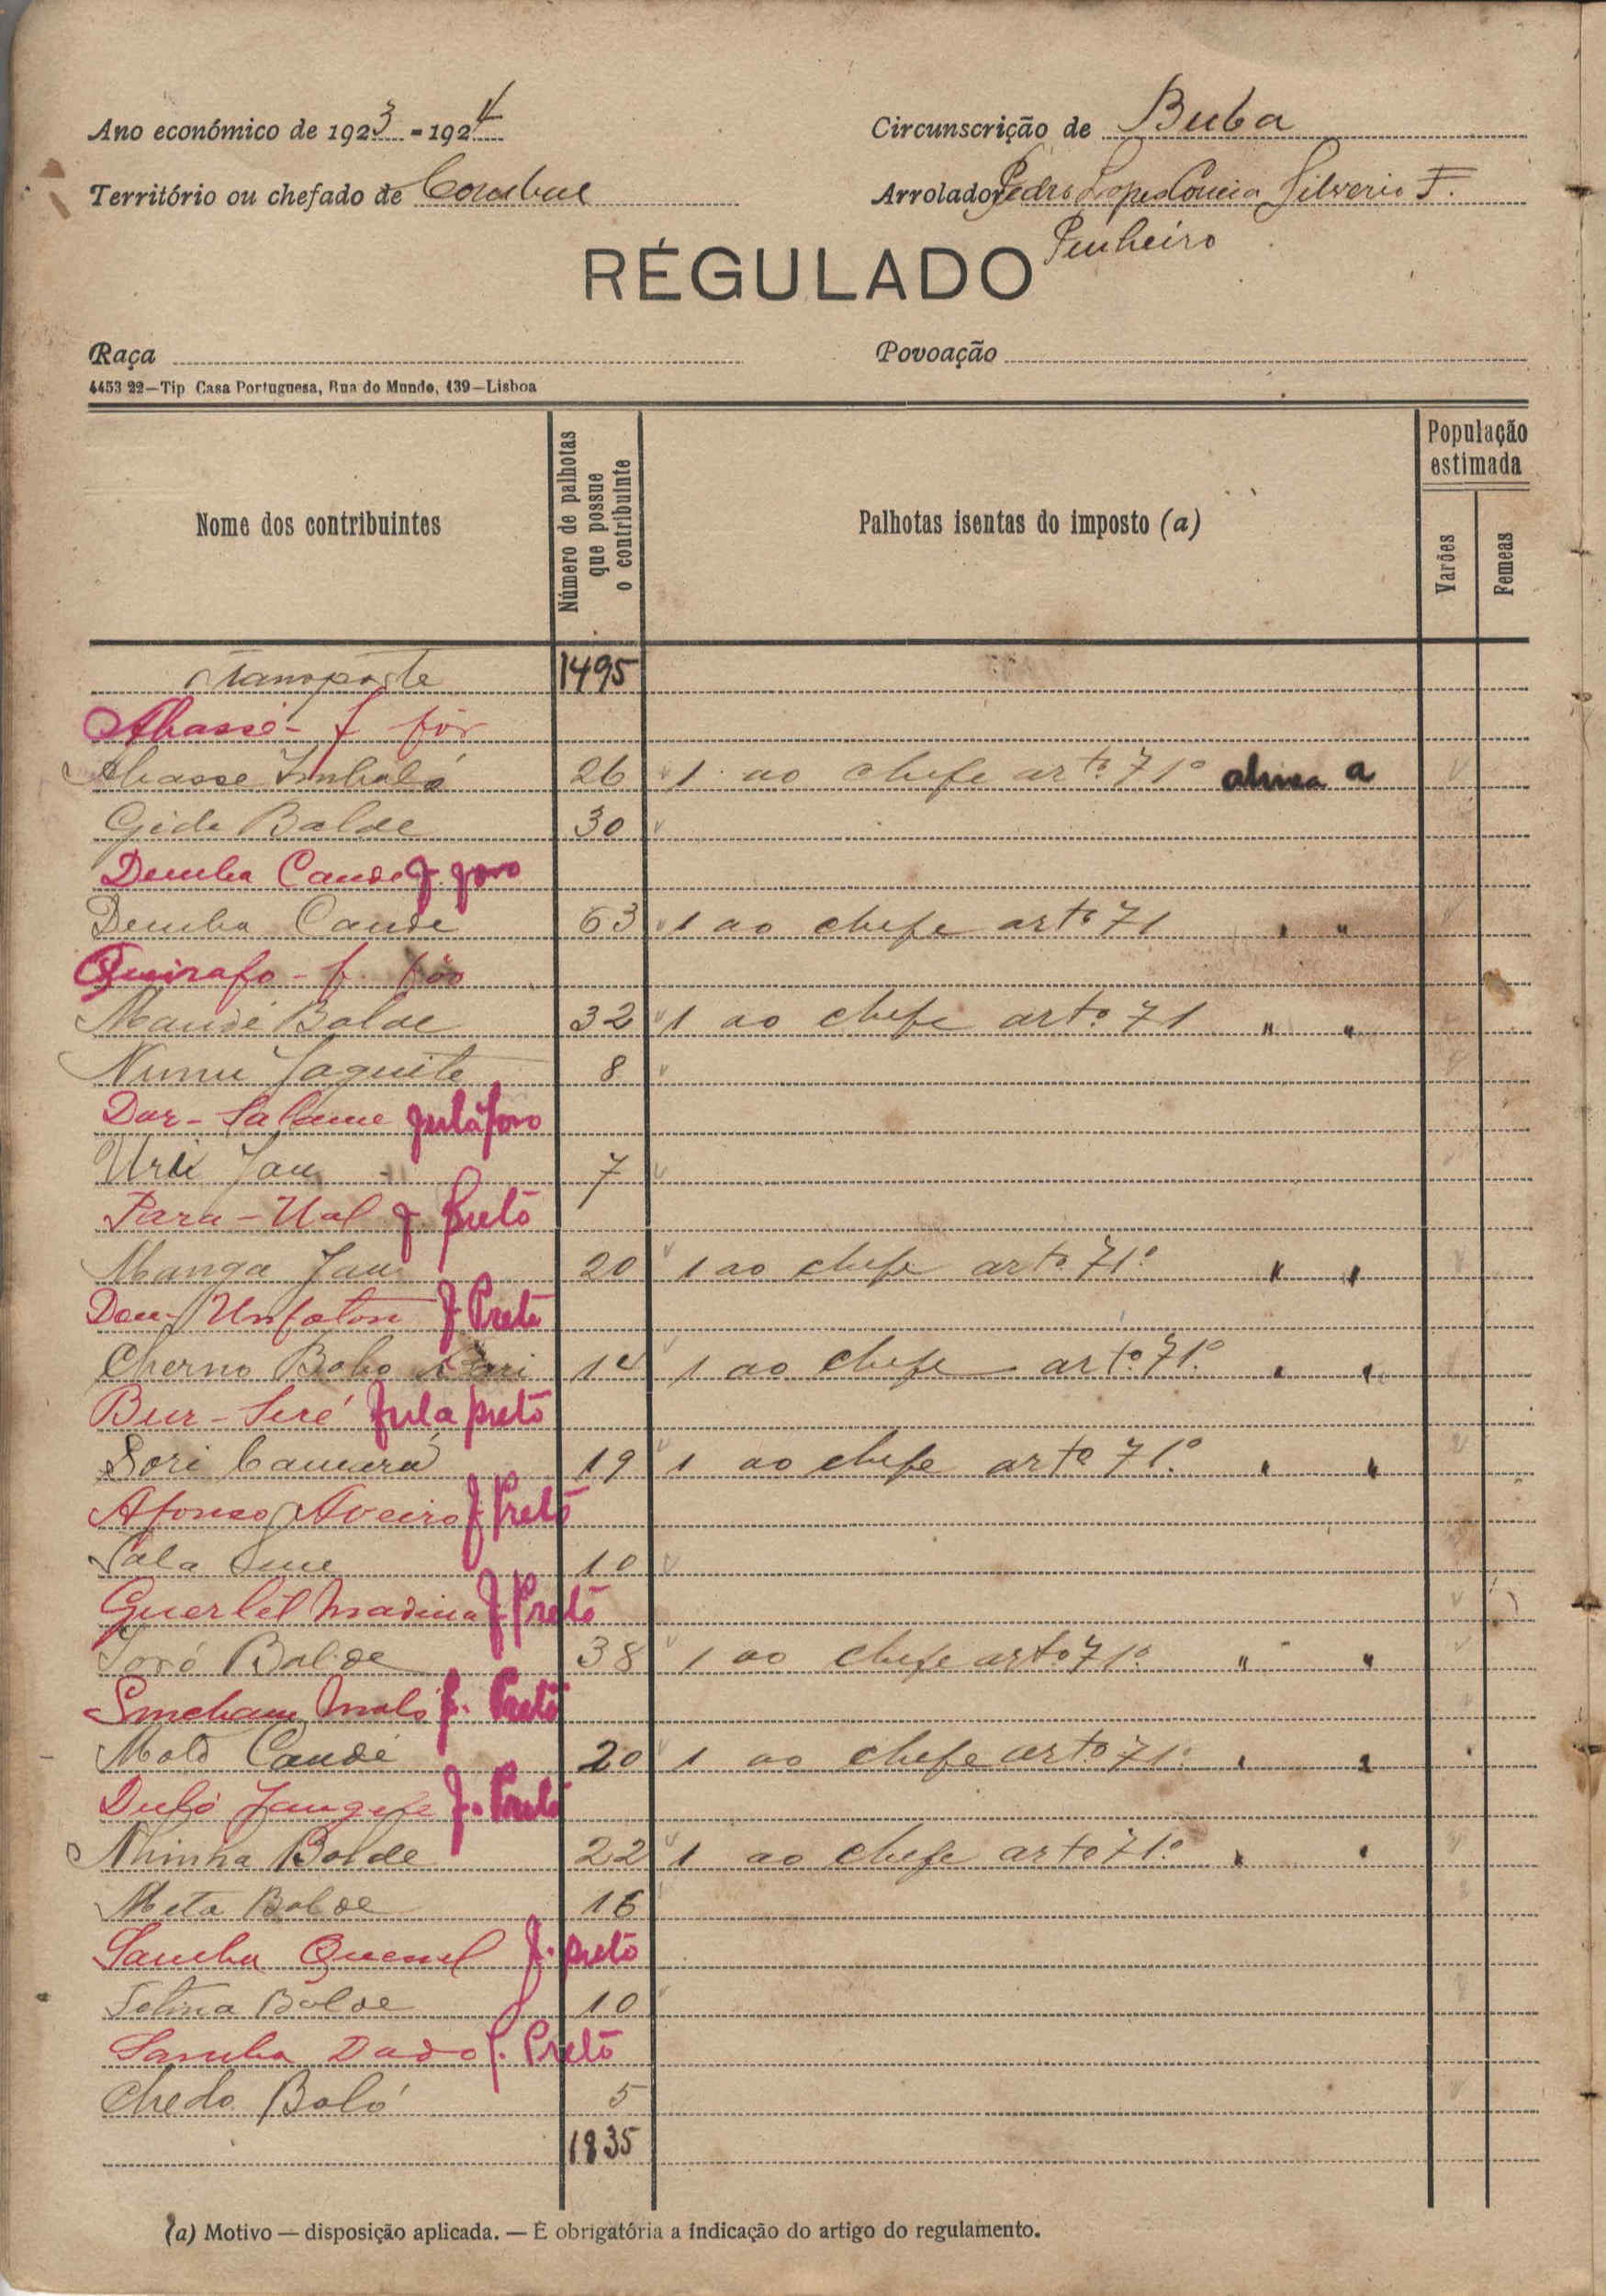 Ano económico de 1923 - 1924
Circunscrição de Buba
Território ou chefado de Corubal
Arrolador Pedro Lopes Correia Silverio F.
Pinheiro
RÉGULADO
Raça
Povoação
4453 22—Tip Casa Portuguesa, Rua do Mundo, 139—Lisboa
Nome dos contribuintes
Número de palhotas que possue o contribuinte
Palhotas isentas do imposto (a)
População estimada
Varões
Femeas
Transporte 1495
Abassé - f fôr
Abasse Imbaló 26 1 ao chefe artº 71º alinea a
Gide Balde 30
Demba Cande f. foro
Demba Cande 63 1 ao chefe artº 71 " "
Quirafo - f.
Maudé Balde 32 1 ao chefe artº 71 " "
8
Dar-Salame fula foro
Jau 7
Para-Ual f preto
Manga Jau 20 1 ao chefe artº 71º " "
f Preto
Cherno Bobo 14 1 ao chefe artº 71º " "
Bur-Seré fula preto
Sori Camará 19 1 ao chefe artº 71º " "
Afonso Aveiro f Preto
10
Guerlél Madina f Preto
Balde 38 1 ao chefe artº 71º " "
f. Preto
Candé 20 1 ao chefe artº 71º " "
Duló f. Preto
Balde 22 1 ao chefe artº 71º " "
Meta Balde 16
Samba f. preto
Balde 10
Samba Dado f. Preto
Chedo Baló 5
1835
(a) Motivo — disposição aplicada. — E obrigatória a indicação do artigo do regulamento.